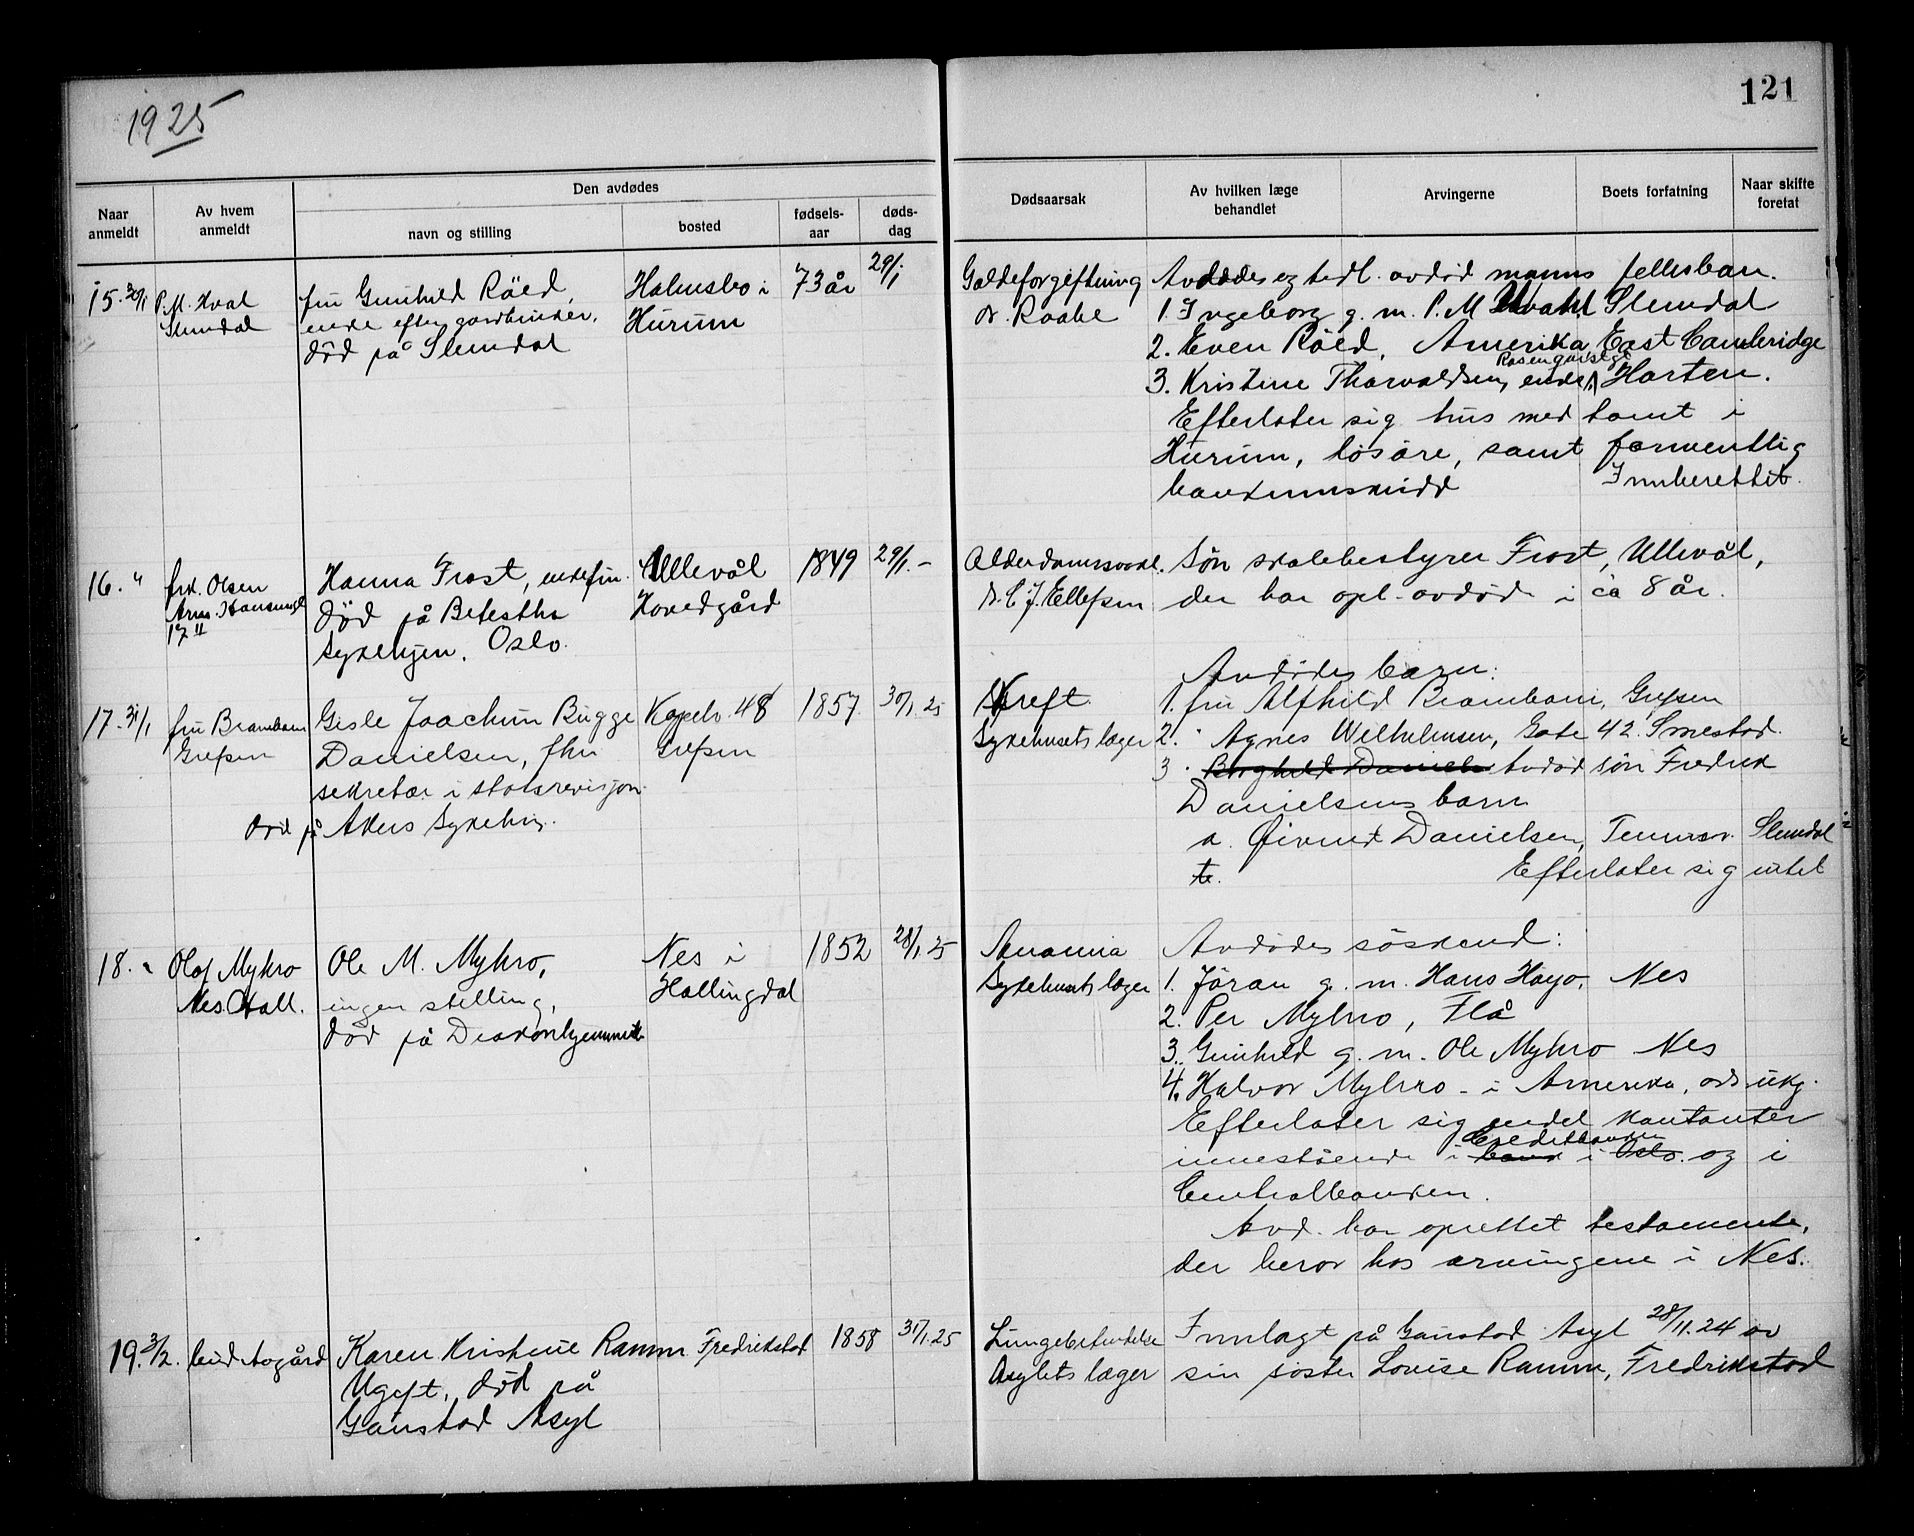 1925
121
Naar anmeldt
Av hvem anmeldt
Den avdødes
navn og stilling
bosted
fødselsaar
dødsdag
Dødsaarsak
Av hvilken læge behandlet
Arvingerne
Boets forfatning
Naar skifte foretat
15. 30/1 P.M. Hval
Slemdal
fru Gunhild Röed,
enke efter gardbruker,
död på Slemdal
Holmsbo i
Hurum
73 år
29/1
Galdeforgiftning
dr. Raabe
Avdödes og tidl. avdöd manns fellesbarn.
1. Ingeborg g. m. P. M. Hval Slemdal
2. Even Röed, Amerika, East Cambridge
Rosengårdsgt
3. Kristine Thorvaldsen, enke, Horten.
Efterlater sig hus med tomt i
Hurum, lösöre, samt formentlig
bankinnskudd Innberettet.
16. " frk. Olsen
Arne Hansensgt
17 II
Hanna Frost, enkefru.
död på Betestha
sykehjem. Oslo.
Ullevål
Hovedgård
1849
29/1. -
Alderdomssvakh.
dr. C. J. Ellefsen
Sön skolebestyrer Frost, Ullevål,
der har opl. avdöde i ca 8 år.
17. 31/1 fru Brambani
Grefsen
Gisle Joachim Bugge
Danielsen, fhv
sekretær i statsrevisjon.
död på Akers sykehus.
Kapelv. 48
Grefsen
1857
30/1. 25
Kreft
Sykehusets læger
Avdödes barn:
1. fru Alfhild Brambani, Grefsen
2. " Agnes Wilhelmsen, Gate 42. Smestad.
3 " Borghild Daniels Avdöd sön Fredrik
Danielsens barn
a. Öivind Danielsen, Tennisv. Slemdal
b.
Efterlater sig intet
18. " Olaf Myhro
Nes. Hall.
Ole M. Myhro,
ingen stilling,
död på Diakonhjemmet
Nes i
Hallingdal
1852
28/1 25
Anæmia
Sykehusets læger
Avdödes söskend:
1. Jöran g. m. Hans Haga, Nes
2. Per Myhro, Flå
3. Gunhild g. m. Ole Myhro Nes
4. Halvor Myhro - i Amerika, ads. ukj.
Efterlater sig endel kontanter
Creditbanken
innestående i bank i Oslo og i
Centralbanken.
Avd. har oprettet testamente,
der beror hos arvingene i Nes.
19. 3/2. lensm. Aogård
Karen Kristine Ramm
Ugift, död på
Gaustad Asyl
Fredrikstad
1858
31/1. 25
Lungebetendelse
Asylets læger
Innlagt på Gaustad Asyl 28/11. 24 av
sin söster Lovise Ramm, Fredrikstad